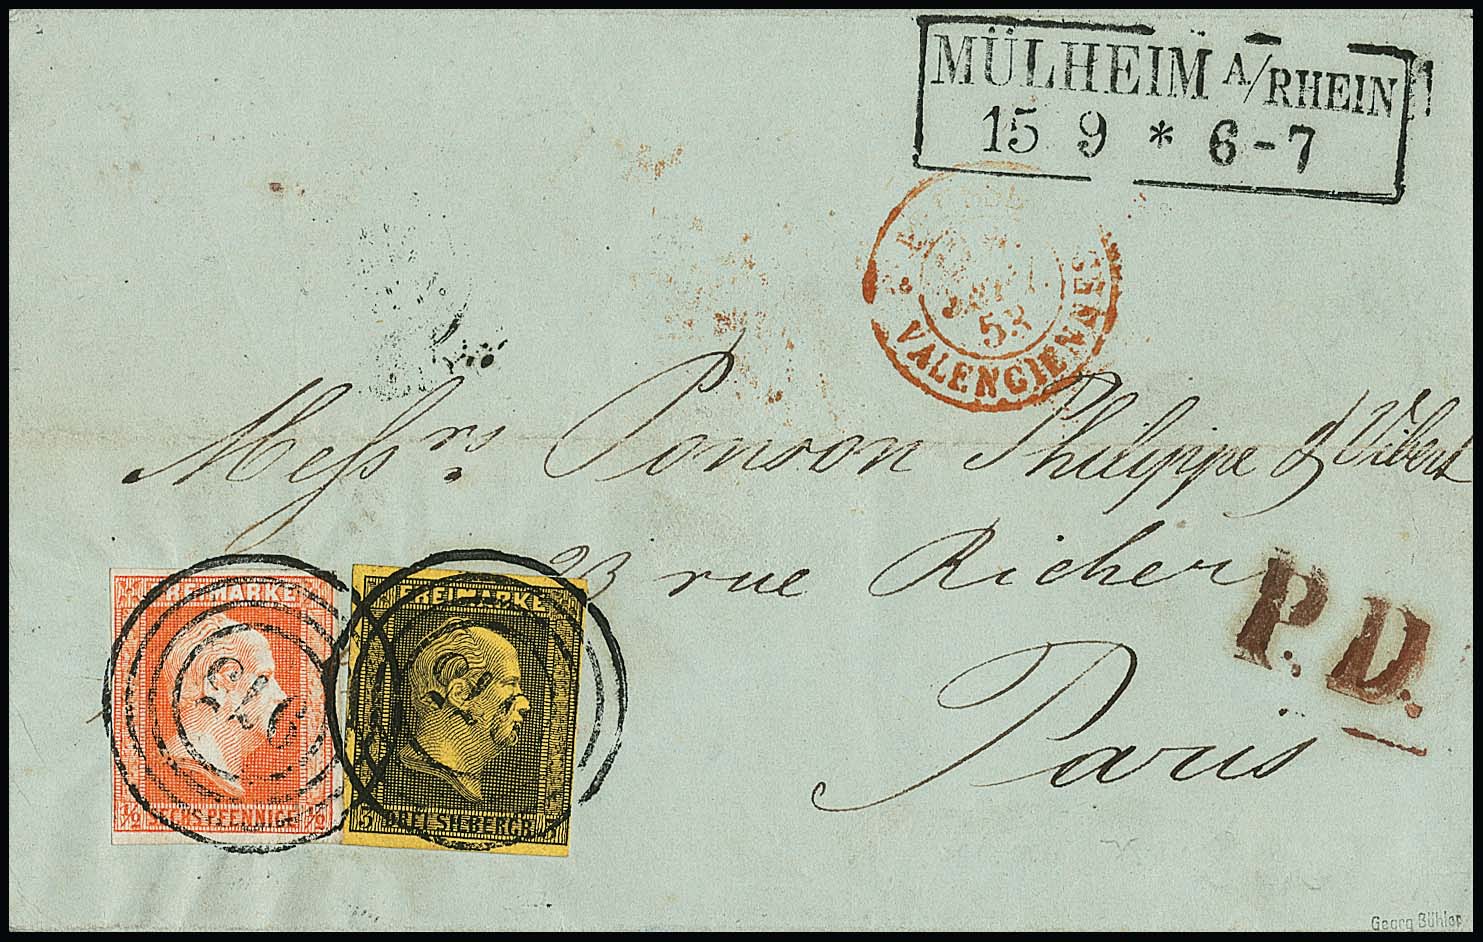 MÜLHEIM A/RHEIN
15 9 * 6-7
53
VALENCIENNES
Messrs. Ponson Philippe & Vibert
23 rue Richer
P.D.
Paris
FREIMARKE
1/2 SECHS PFENNIGE 1/2
FREIMARKE
3 DREI SILBERGR.
Georg Bühler